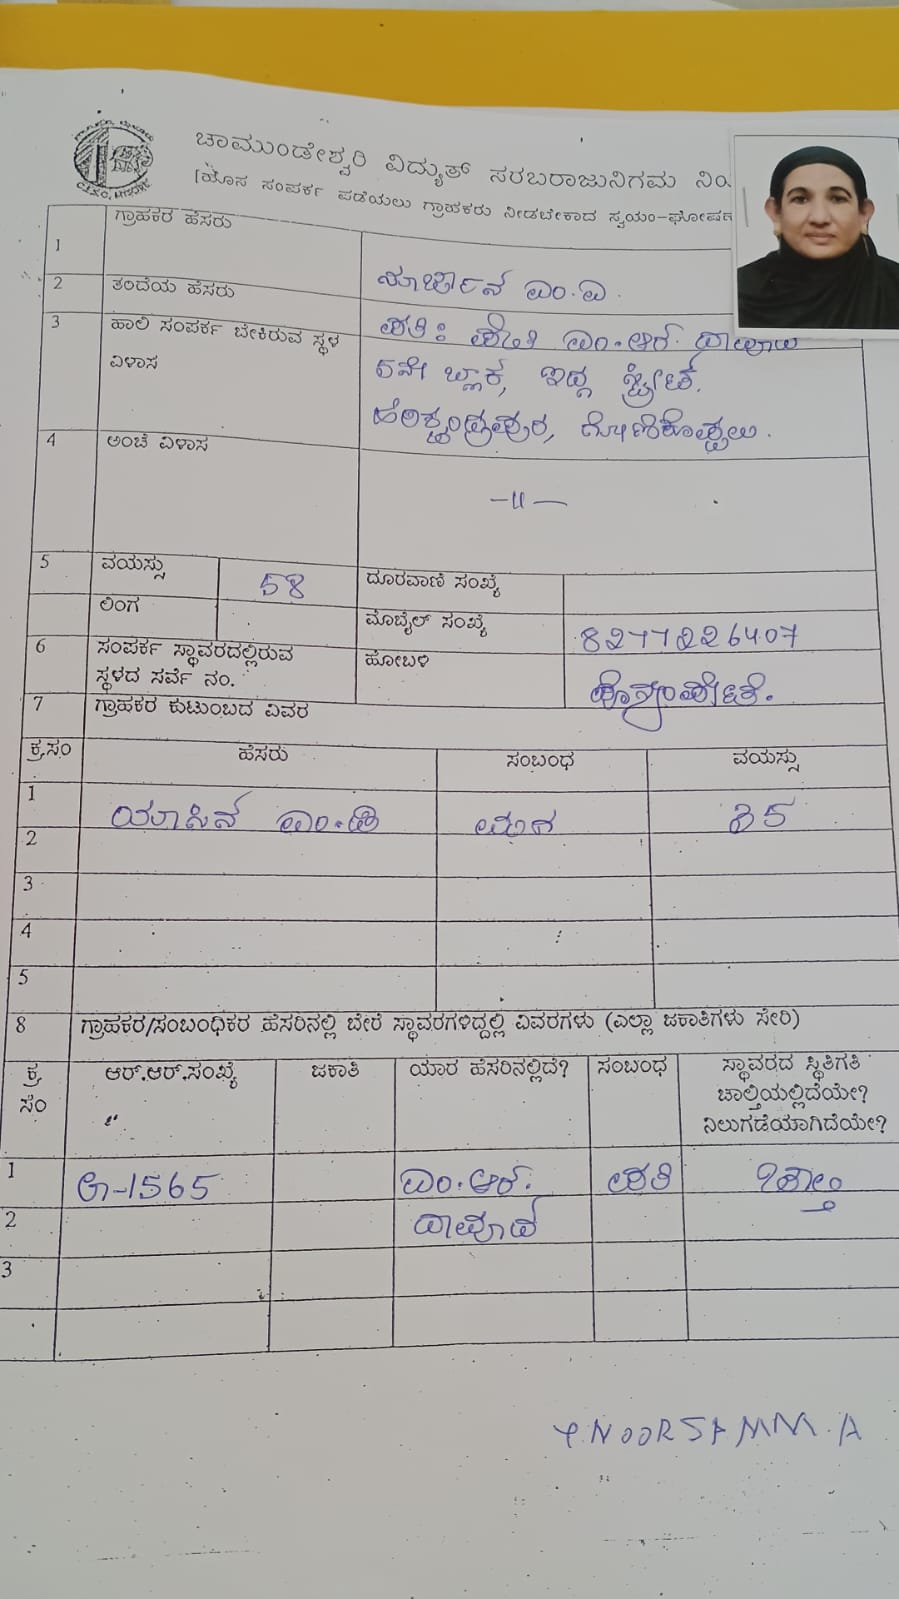 ಚಾಮುಂಡೇಶ್ವರಿ ವಿದ್ಯುತ್ ಸರಬರಾಜುನಿಗಮ ನಿಯ
(ಹೊಸ ಸಂಪರ್ಕ ಪಡೆಯಲು ಗ್ರಾಹಕರು ನೀಡಬೇಕಾದ ಸ್ವಯಂ-ಘೋಷಣ
1 ಗ್ರಾಹಕರ ಹೆಸರು ಎಂ.ಎ.
2 ತಂದೆಯ ಹೆಸರು ಪತಿ: ಎಂ.ಆರ್. ದಾವೂದ
3 ಹಾಲಿ ಸಂಪರ್ಕ ಬೇಕಿರುವ ಸ್ಥಳ 5ನೇ ಬ್ಲಾಕ್,
ವಿಳಾಸ ಹರಿಶ್ಚಂದ್ರಪುರ, ಗೋಣಿಕೊಪ್ಪಲು.
4 ಅಂಚೆ ವಿಳಾಸ
—11—
5 ವಯಸ್ಸು 58 ದೂರವಾಣಿ ಸಂಖ್ಯೆ
ಲಿಂಗ ಮೊಬೈಲ್ ಸಂಖ್ಯೆ 8277226407
6 ಸಂಪರ್ಕ ಸ್ಥಾವರದಲ್ಲಿರುವ ಹೋಬಳಿ
ಸ್ಥಳದ ಸರ್ವೆ ನಂ.
7 ಗ್ರಾಹಕರ ಕುಟುಂಬದ ವಿವರ
ಕ್ರ.ಸಂ ಹೆಸರು ಸಂಬಂಧ ವಯಸ್ಸು
1 ಯಾಸಿನ್ ಎಂ.ಡಿ ಮಗ 35
2
3
4
5
8 ಗ್ರಾಹಕರ/ಸಂಬಂಧಿಕರ ಹೆಸರಿನಲ್ಲಿ ಬೇರೆ ಸ್ಥಾವರಗಳಿದ್ದಲ್ಲಿ ವಿವರಗಳು (ಎಲ್ಲಾ ಜಕಾತಿಗಳು ಸೇರಿ)
ಕ್ರ ಆರ್.ಆರ್.ಸಂಖ್ಯೆ ಜಕಾತಿ ಯಾರ ಹೆಸರಿನಲ್ಲಿದೆ? ಸಂಬಂಧ ಸ್ಥಾವರದ ಸ್ಥಿತಿಗತಿ
ಸಂ ಚಾಲ್ತಿಯಲ್ಲಿದೆಯೇ?
ನಿಲುಗಡೆಯಾಗಿದೆಯೇ?
1 -1565 ಎಂ.ಆರ್. ಪತಿ
2 ದಾವೂದ್
3
NOORSAMM.A